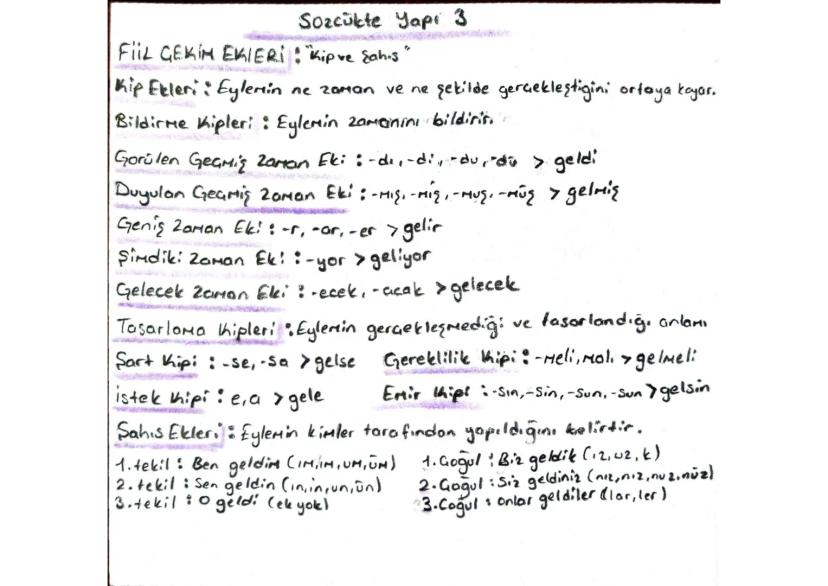 Sözcükte Yapı 3
FİİL ÇEKİM EKLERİ : "Kip ve Şahıs"
Kip Ekleri : Eylemin ne zaman ve ne şekilde gerçekleştiğini ortaya koyar.
Bildirme Kipleri : Eylemin zamanını bildirir.
Görülen Geçmiş Zaman Eki : -dı, -di, -du, -dü > geldi
Duyulan Geçmiş Zaman Eki : -mış, -miş, -muş, -müş > gelmiş
Geniş Zaman Eki : -r, -ar, -er > gelir
Şimdiki Zaman Eki : -yor > geliyor
Gelecek Zaman Eki : -ecek, -acak > gelecek
Tasarlama Kipleri : Eylemin gerçekleşmediği ve tasarlandığı anlamı
Şart Kipi : -se, -sa > gelse Gereklilik Kipi : -meli, malı > gelmeli
İstek Kipi : e, a > gele Emir Kipi : -sın, -sin, -sun, -sün > gelsin
Şahıs Ekleri : Eylemin kimler tarafından yapıldığını belirtir.
1. tekil : Ben geldim (ım, im, um, üm) 1. Çoğul : Biz geldik (ız, uz, k)
2. tekil : Sen geldin (ın, in, un, ün) 2. Çoğul : Siz geldiniz (nız, niz, nuz, nüz)
3. tekil : O geldi (ek yok) 3. Çoğul : onlar geldiler (lar, ler)